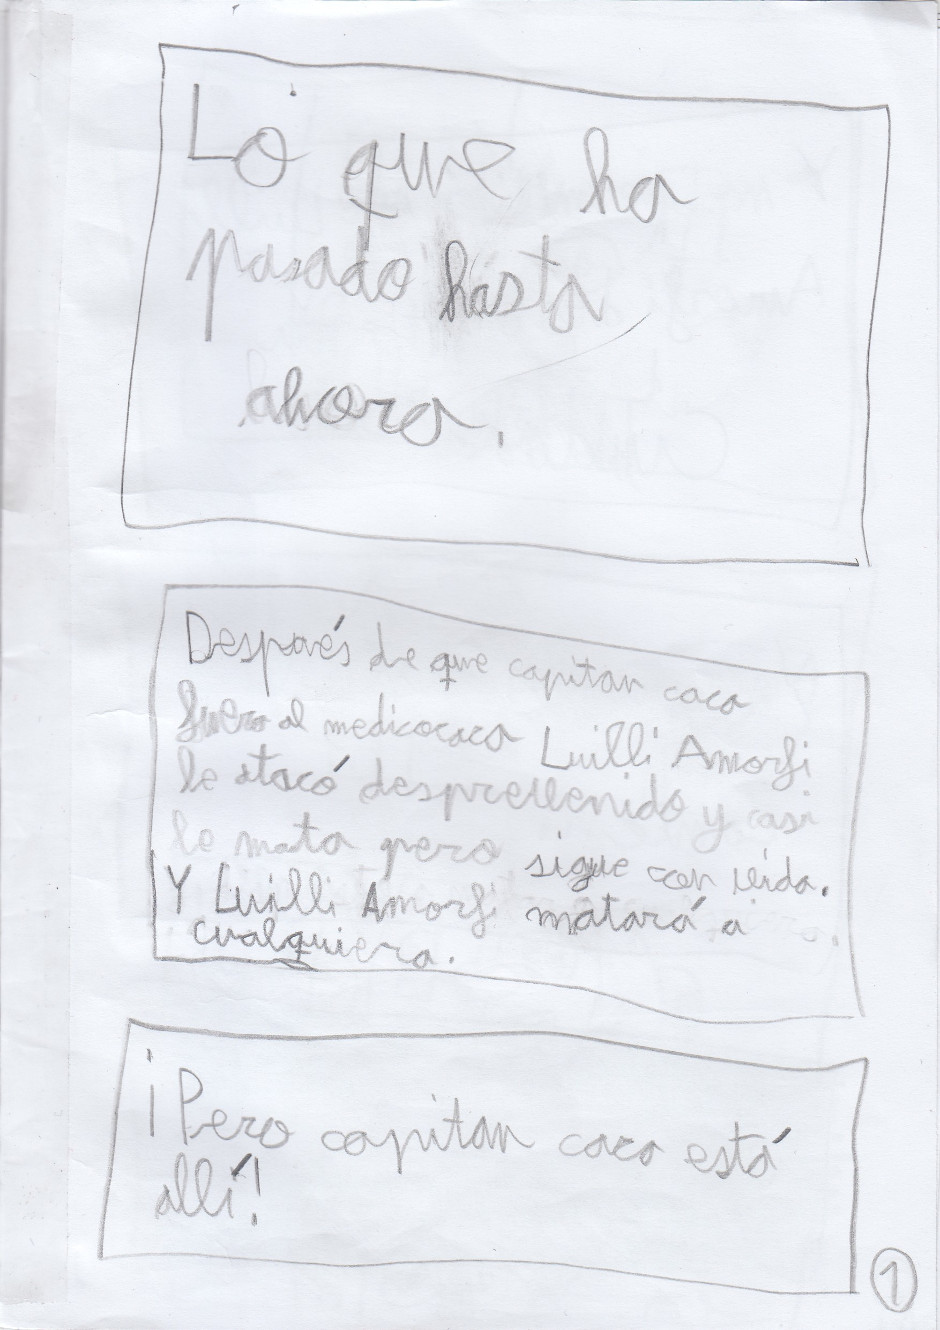 Lo que ha
pasado hasta
ahora.
Después de que capitan caca
fuero al medicocaca Luilli Amorfi
le atacó despreuenido y casi
le mata pero sigue con uida.
Y Luilli Amorfi matará a
cualquiera.
¡Pero capitan caca está
allí!
1